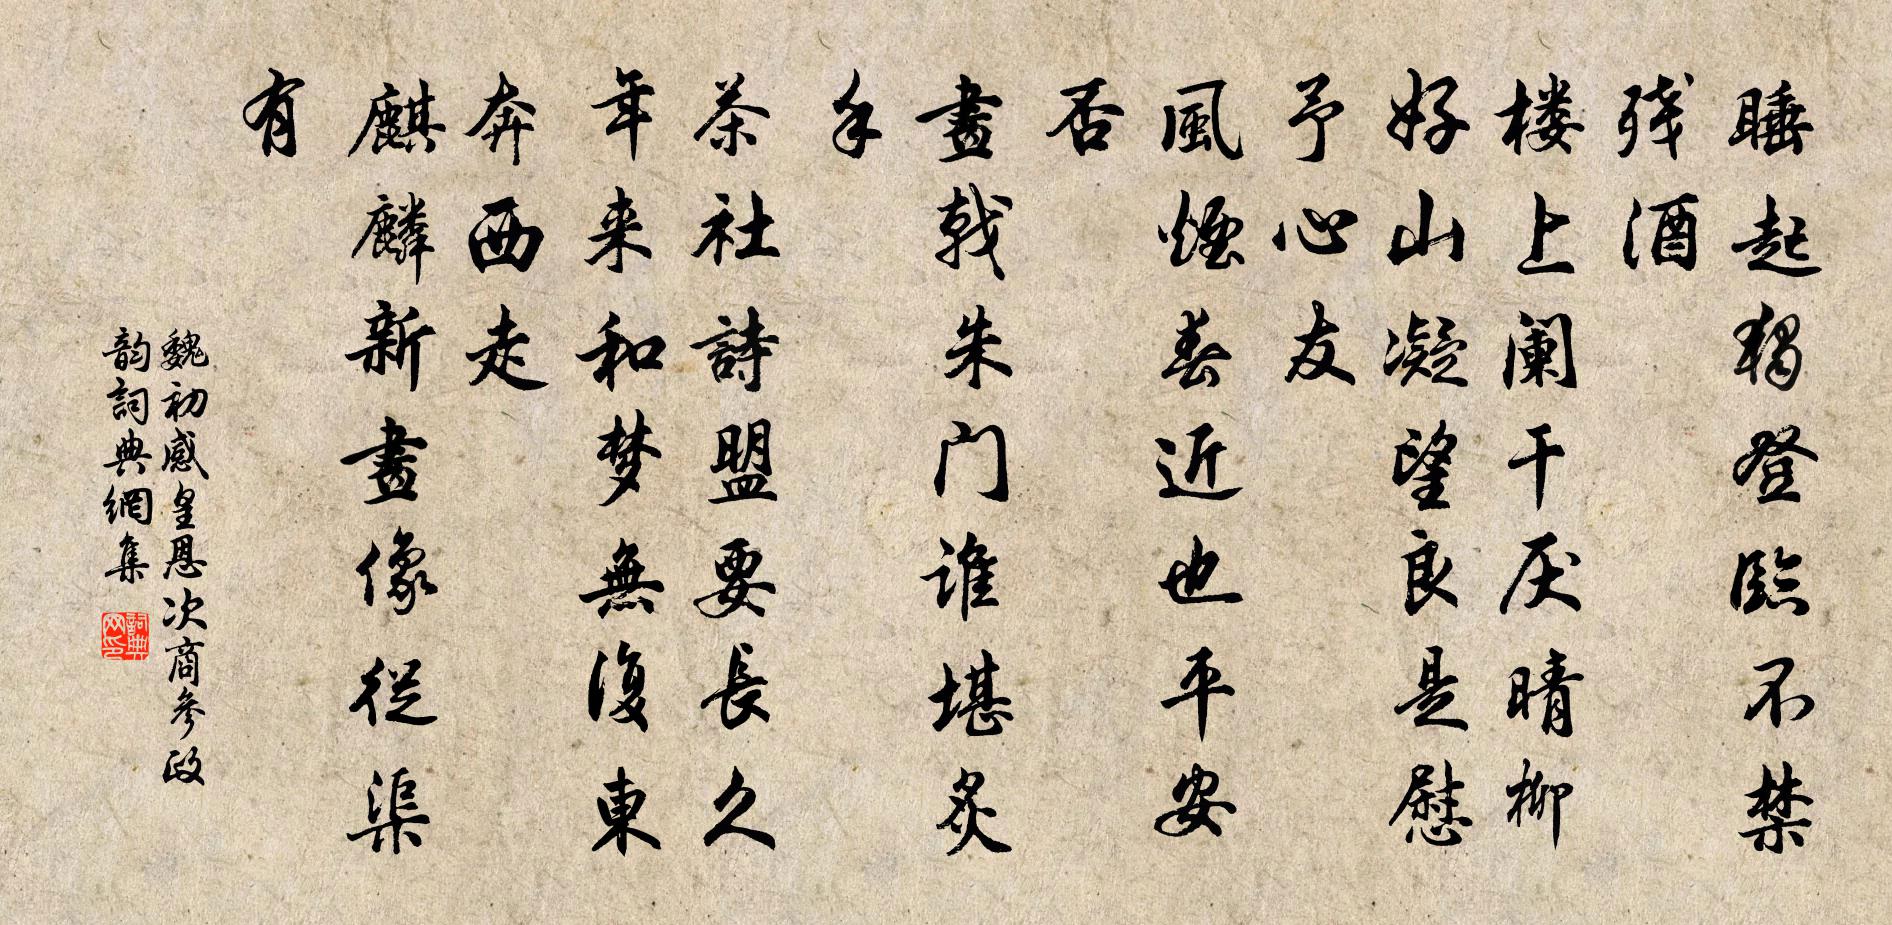 睡起独登臨不禁
残酒
楼上阑干厌晴柳
好山凝望良是慰
予心友
風煙春近也平安
否
畫戟朱门谁堪炙
手
茶社詩盟要長久
年来和梦無復東
奔西走
麒麟新畫像従渠
有
魏初感皇恩次商參政
韵詞典網集
詞典网印